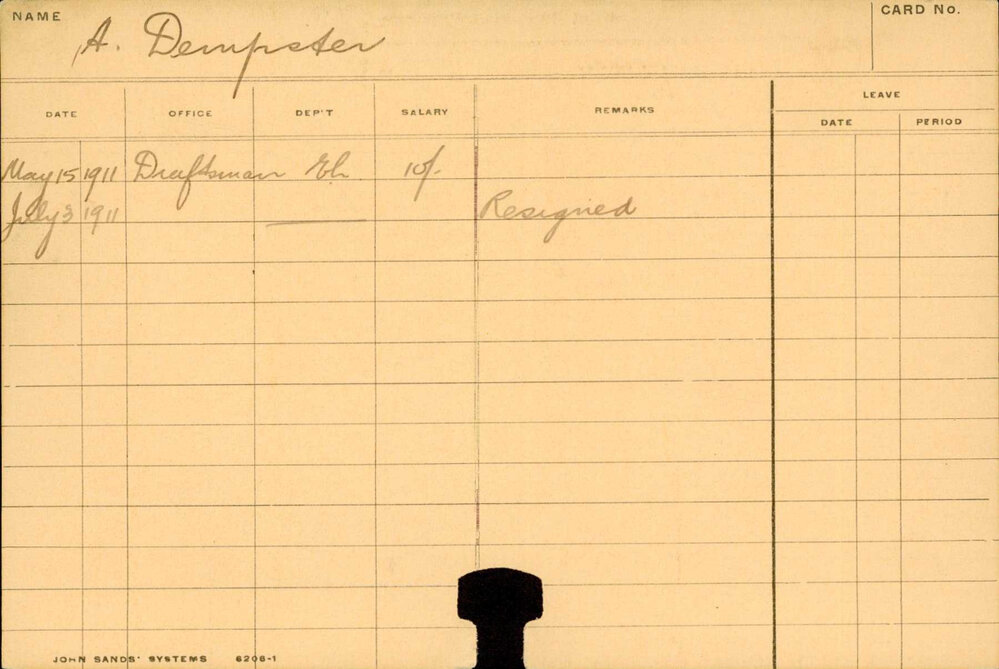 NAME A. Dempster CARD No.
LEAVE
DATE OFFICE DEP'T SALARY REMARKS DATE PERIOD
May 15 1911 Draftsman El. 10/-
July 3 1911 Resigned
JOHN SANDS' SYSTEMS 6206-1